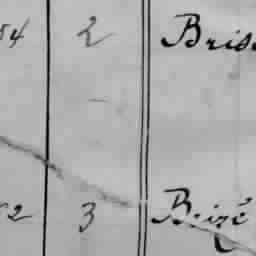 54 2 Bris
52 3 Brizé